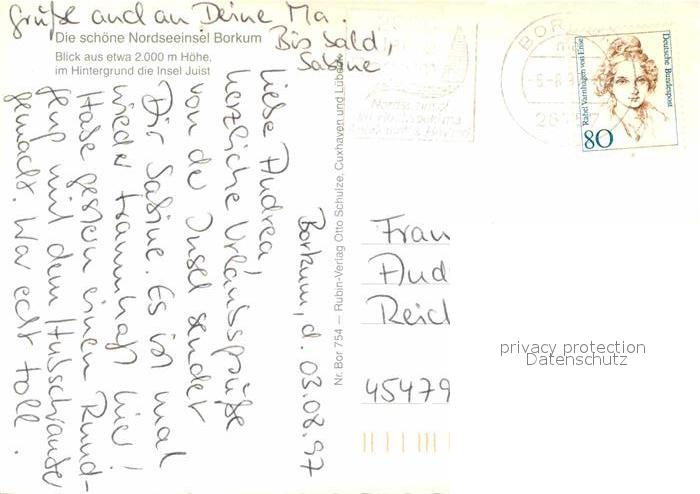 Die schöne Nordseeinsel Borkum
Blick aus etwa 2.000 m Höhe,
im Hintergrund die Insel Juist
Borkum, d. 03.08.97
Liebe Andrea,
herzliche Urlaubsgrüße
von der Insel sendet
Dir Sabine. Es ist mal
wieder traumhaft hier!
Habe gestern einen Rund-
flug mit dem Hubschrauber
gemacht. War echt toll.
Grüße auch an Deine Ma.
Bis bald,
Sabine
Nr. Bor 754 — Rubin-Verlag Otto Schulze, Cuxhaven und Lübeck
Rahel Varnhagen von Ense
Deutsche Bundespost
80
Frau
And
Reich
45479
privacy protection
Datenschutz